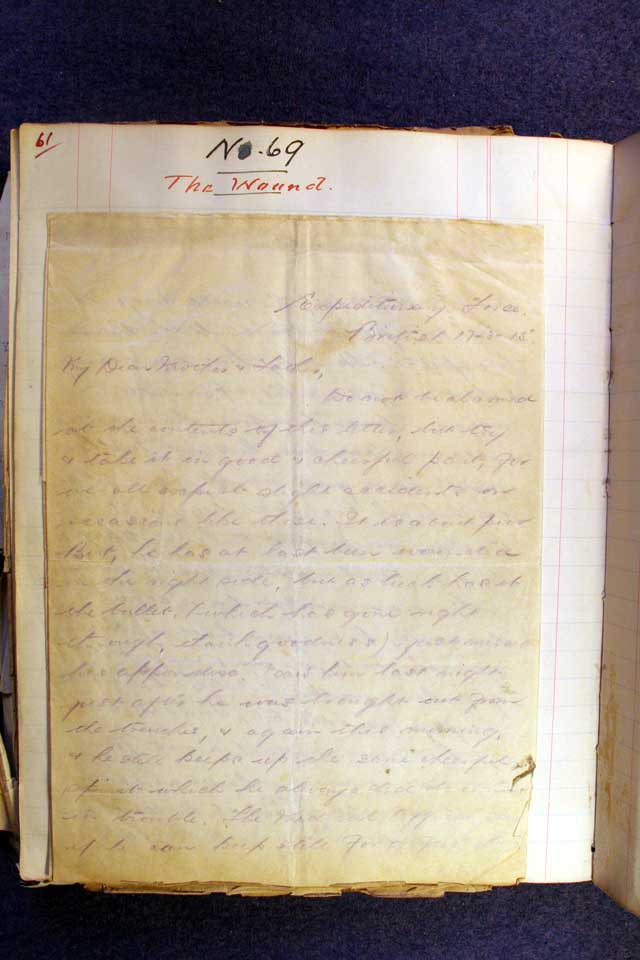 61
No. 69
The Wound.
Expeditionary Force.
British 17-3-15
My Dear Mother & Father,
Do not be alarmed
at the contents of this letter, but try
& take it in good & cheerful part, for
we all expect slight accidents on
occasions like these. It is about poor
Bert, he has at last been wounded
in the right side, but as luck has it
the bullet, (which has gone right
through, thank goodness) just missed
his appendix. him last night
just after he was brought out from
the trenches, & again this morning,
& he still keeps up the same cheerful
spirit which he always did
in trouble. The
if he can keep still for